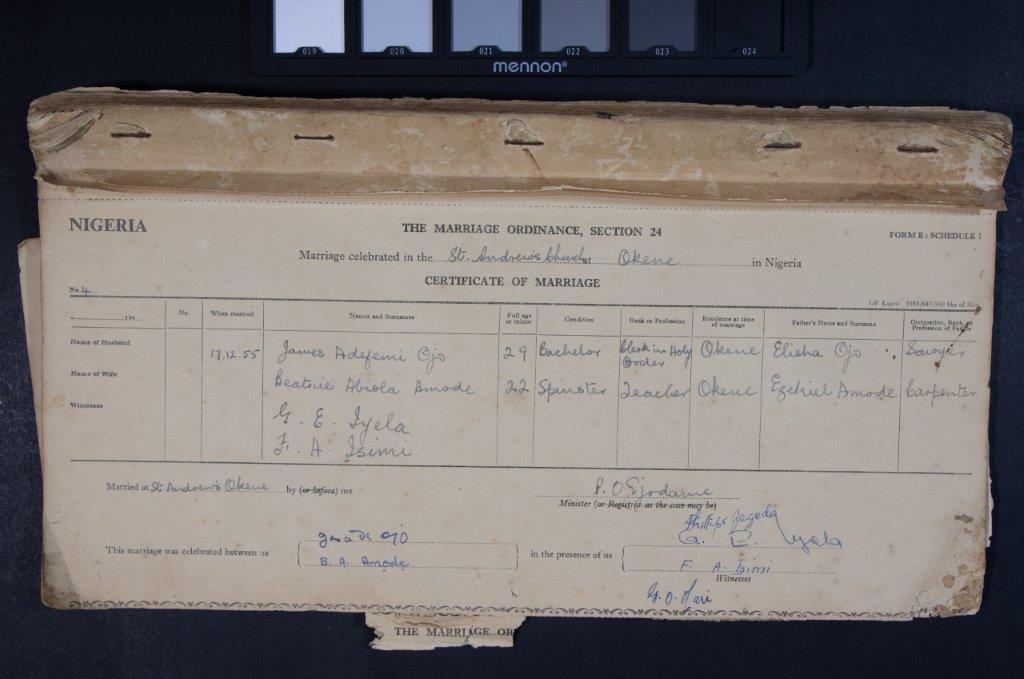 019 020 021 022 023 024
mennon®
NIGERIA
THE MARRIAGE ORDINANCE, SECTION 24
FORM E : SCHEDULE 1
Marriage celebrated in the St. Andrews Church at Okene in Nigeria
CERTIFICATE OF MARRIAGE
No. 4
GP Lagos 1583/647/500 bks of 50
194 No. When married Names and Surnames Full age or minor Condition Rank or Profession Residence at time of marriage Father's Name and Surname Occupation, Rank, or Profession of Father
Name of Husband 17.12.55 James Adefemi Ojo 29 Bachelor Clerk in Holy Order Okene Elisha Ojo Sawyer
Name of Wife Beatrice Abiola Amode 22 Spinster Teacher Okene Ezekiel Amode Carpenter
Witnesses G. E. Iyela
F. A. Isimi
Married at St Andrew's Okene by (or before) me
Minister (or Registrar as the case may be)
G. E. Iyela
This marriage was celebrated between us Ojo in the presence of us
B. A. Amode F. A. Isimi
Witnesses
THE MARRIAGE OR